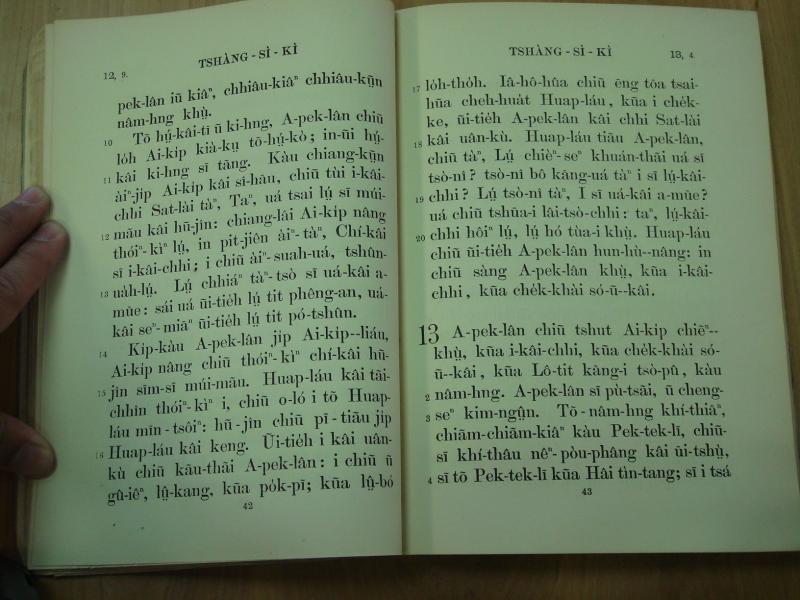 12, 9.
TSHÀNG - SÌ - KÌ
pek-lân iū kiâⁿ, chhiâu-kiâⁿ chhiâu-kṳ̄n
nâm-hng khṳ̀.
10 Tō hṳ́-kâi-tī ū ki-hng, A-pek-lân chiū
lo̍h Ai-ki̍p kià-kṳ tō-hṳ́-kò; in-ūi hṳ́-
11 kâi ki-hng sī tăng. Kàu chiang-kṳ̄n
ài-ⁿji̍p Ai-ki̍p kâi sî-hāu, chiū tùi i-kâi-
chhi Sat-lài tàⁿ, Taⁿ, uá tsai lṳ́ sī múi-
12 māu kâi hū-jîn: chiang-lâi Ai-ki̍p nâng
thóiⁿ-kìⁿ lṳ́, in pit-jiên àiⁿ-tàⁿ, Chí-kâi
sī i-kâi-chhi; i chiū àiⁿ-suah-uá, tshûn-
13 ua̍h-lṳ́. Lṳ́ chhiáⁿ tàⁿ-tsò sī uá-kâi a-
mūe: sái uá ūi-tie̍h lṳ́ tit phêng-an, uá-
kâi seⁿ-miāⁿ ūi-tie̍h lṳ́ tit pó-tshûn.
14 Ki̍p-kàu A-pek-lân ji̍p Ai-ki̍p--liáu,
Ai-ki̍p nâng chiū thóiⁿ-kìⁿ chí-kâi hū-
15 jîn sĭm-sĭ múi-māu. Huap-láu kâi tāi-
chhîn thóiⁿ-kìⁿ i, chiū o-ló i tŏ Huap-
láu mīn-tsôiⁿ: hū-jîn chiū pī-tiāu ji̍p
16 Huap-láu kâi keng. Ūi-tie̍h i kâi uân-
kù chiū kāu-thāi A-pek-lân: i chiū ŭ
gû-iêⁿ, lṳ̂-kang, kūa po̍k-pī; kūa lṳ̂-bó
42
TSHÀNG - SÌ - KÌ
13, 4
17 lo̍h-tho̍h. Iâ-hô-hûa chiū ēng tōa tsai-
hūa cheh-hua̍t Huap-láu, kūa i che̍k-
ke, ūi-tie̍h A-pek-lân kâi chhi Sat-lài
18 kâi uân-kù. Huap-láu tiāu A-pek-lân,
chiū tàⁿ, Lṳ́ chièⁿ-seⁿ khuán-thāi uá sĭ
tsò-nî? tsò-nî bô kăng-uá tàⁿ i sĭ lṳ́-kâi-
19 chhi? Lṳ́ tsò-nî tàⁿ, I sĭ uá-kâi a-mūe?
uá chiū tshūa-i lâi-tsò-chhi: taⁿ, lṳ́-kâi-
20 chhi hôiⁿ lṳ́, lṳ́ hó tùa-i khṳ̀. Huap-láu
chiū ūi-tie̍h A-pek-lân hun-hù--nâng: in
chiū sàng A-pek-lân khṳ̀, kūa i-kâi-
chhi, kūa che̍k-khài só-ŭ--kâi.
13 A-pek-lân chiū tshut Ai-ki̍p chiēⁿ--
khṳ̀, kūa i-kâi-chhi, kūa che̍k-khài só-
ŭ--kâi, kūa Lô-tit kāng-i tsò-pû, kàu
2 nâm-hng. A-pek-lân sĭ pù-tsāi, ŭ cheng-
3 seⁿ kim-ngṳ̂n. Tō-nâm-hng khí-thiâⁿ,
chiām-chiām-kiâⁿ kàu Pek-tek-lī, chiū-
sĭ khí-thâu nêⁿ-pòu-phâng kâi ūi-tshṳ̀,
4 sĭ tŏ Pek-tek-lī kūa Hâi tìn-tang; sĭ i tsá
43